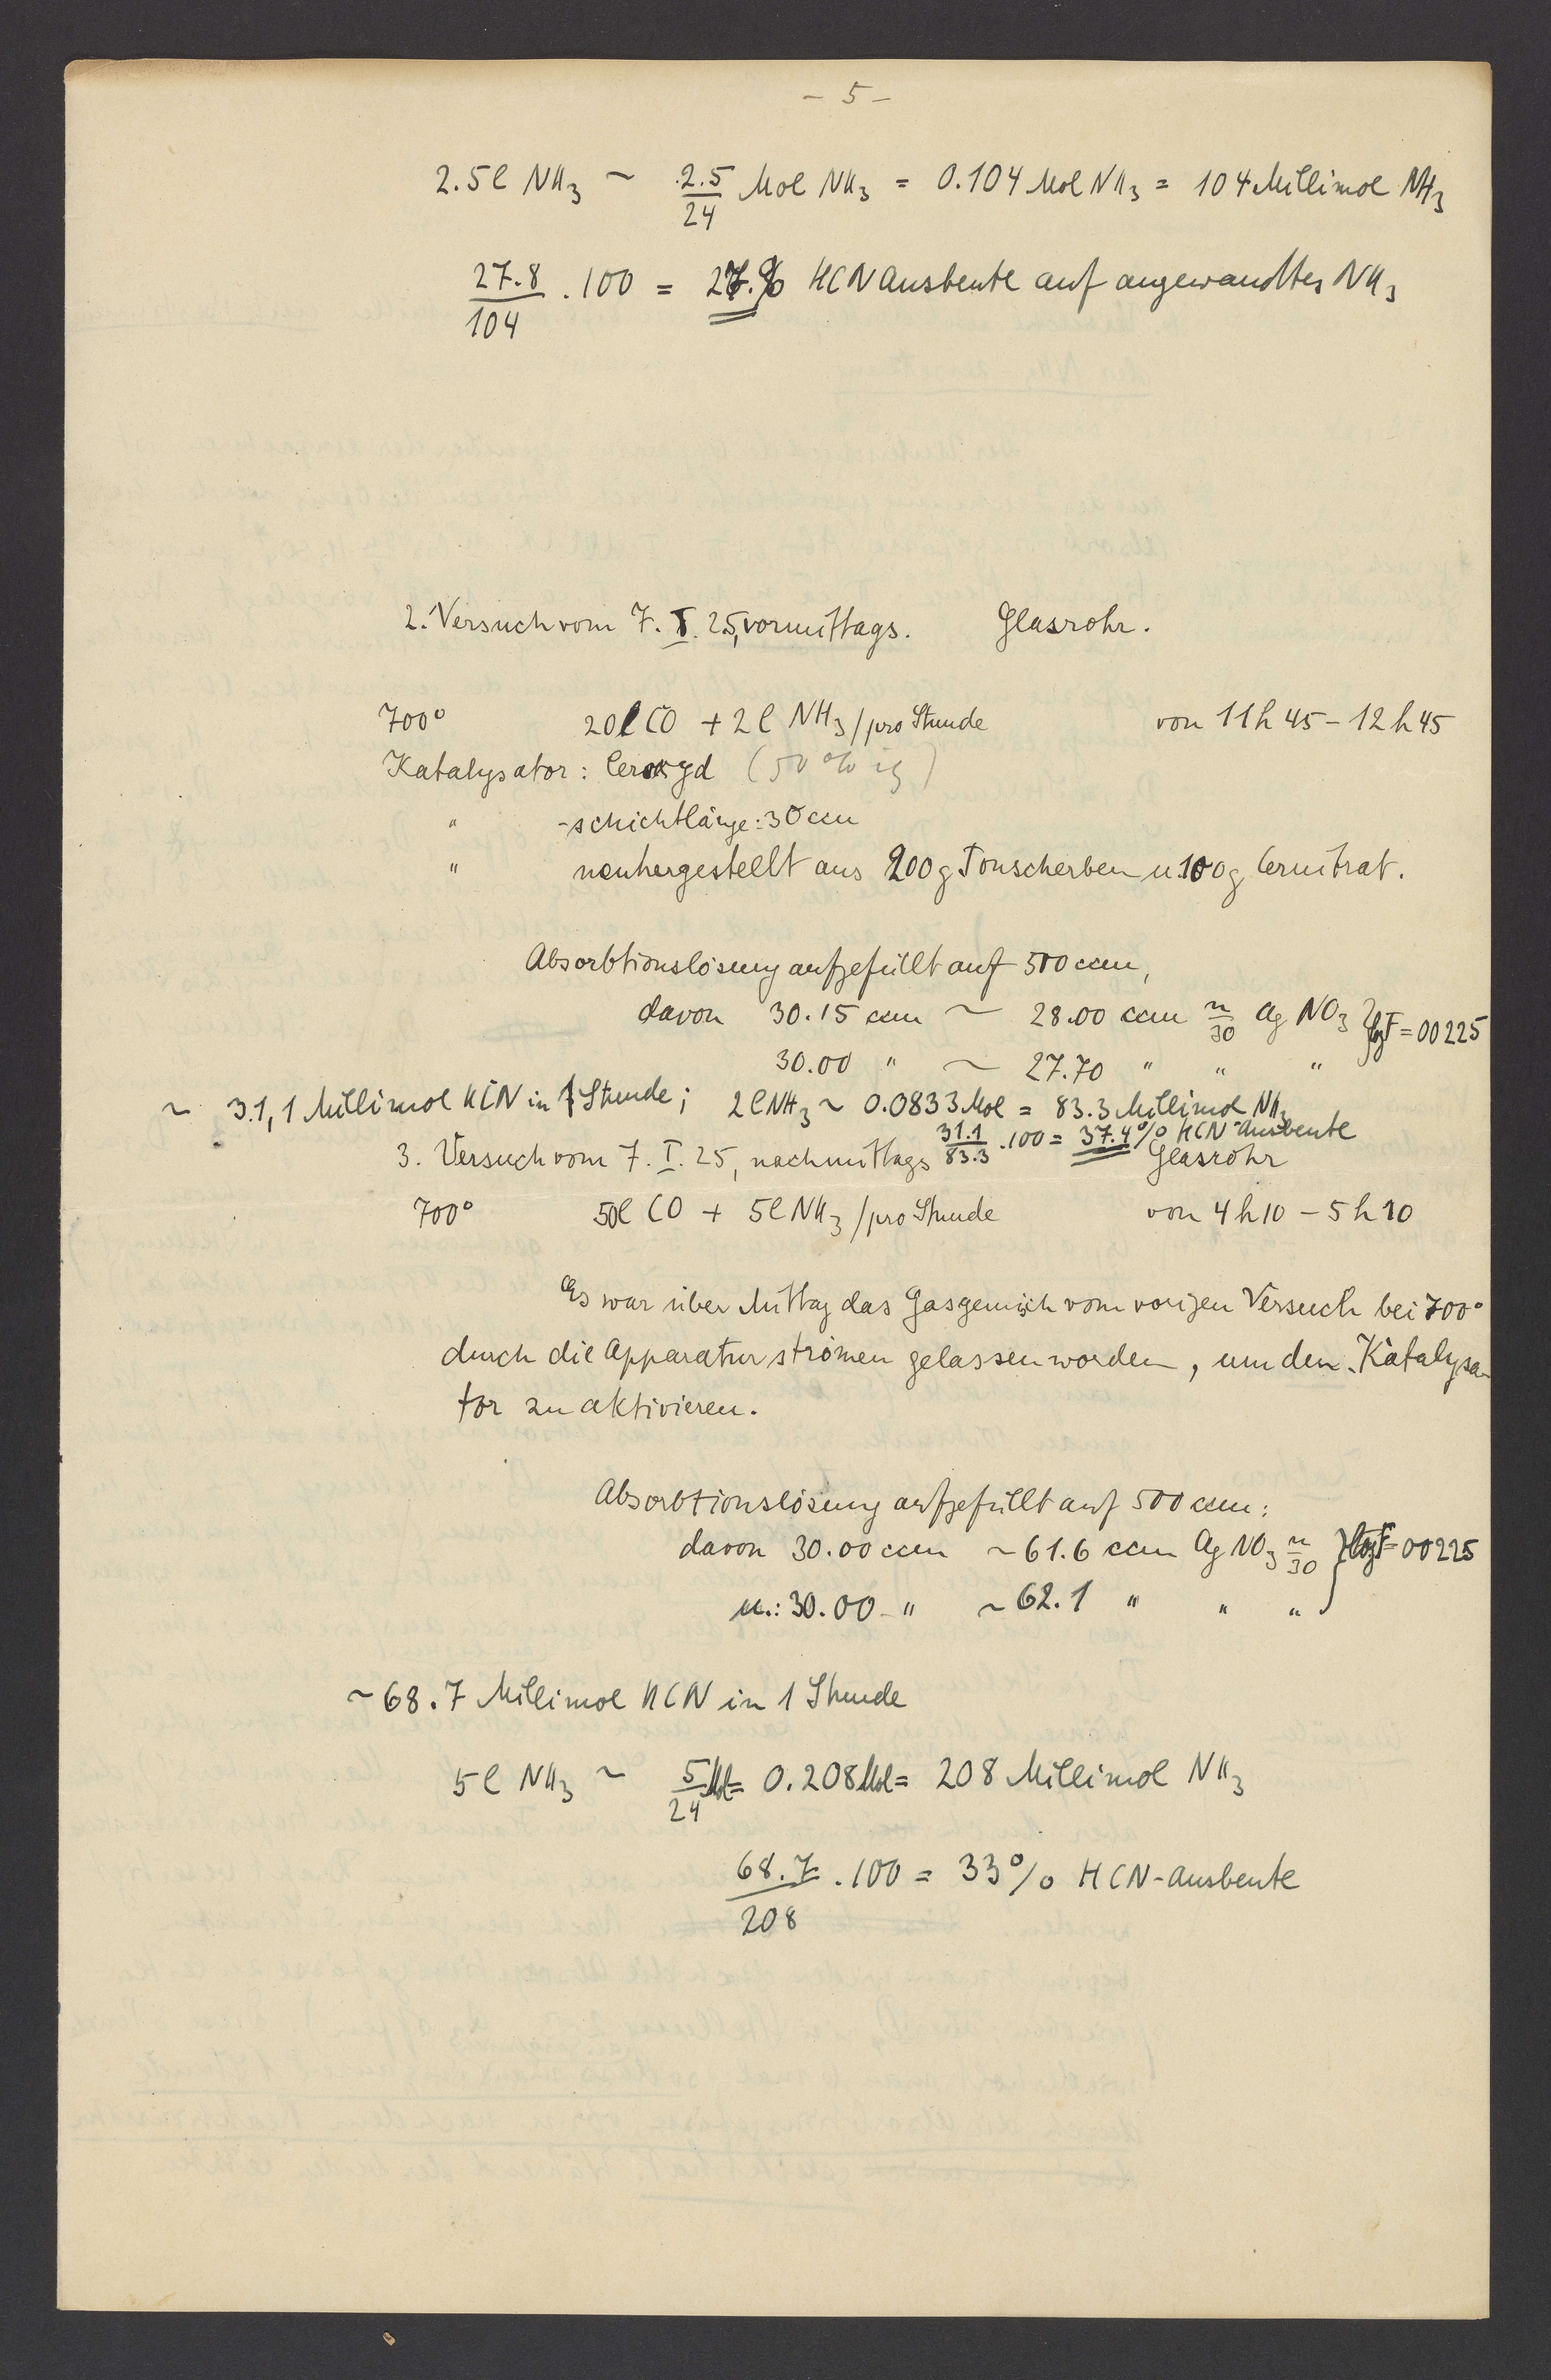 – 5 –
2.5 l NH3 ~ 2.5/24 Mol NH3 = 0.104 Mol NH3 = 104 Millimol NH3
27.8/104 . 100 = % HCN Ausbeute auf angewandtes NH3
2. Versuch vom 7. I. 25, vormittags. Glasrohr.
700° 20 l CO + 2 l NH3 / pro Stunde von 11 h 45 – 12 h 45
Katalysator: Ceroxyd (50 % ig)
" -schichtlänge: 30 ccm
" neuhergestellt aus 200 g Tonscherben u. 100 g Cernitrat.
Absorbtionslösung aufgefüllt auf 500 ccm,
davon 30.15 ccm ~ 28.00 ccm n/30 Ag NO3 } log F = 00225
30.00 " ~ 27.70 " " "
~ 31,1 Millimol HCN in 1 Stunde; 2 l NH3 ~ 0.0833 Mol = 83.3 Millimol NH3
31.1/83.3 . 100 = 37.4 % HCN-Ausbeute
3. Versuch vom 7. I. 25, nachmittags Glasrohr
700° 50 l CO + 5 l NH3 / pro Stunde von 4 h 10 – 5 h 10
Es war über Mittag das Gasgemisch vom vorigen Versuch bei 700°
durch die Apparatur strömen gelassen worden, um den Katalysa-
tor zu aktivieren.
Absorbtionslösung aufgefüllt auf 500 ccm:
davon 30.00 ccm ~ 61.6 ccm Ag NO3 n/30 } log F = 00225
u.: 30.00 " ~ 62.1 " " "
~ 68.7 Millimol HCN in 1 Stunde
5 l NH3 ~ 5/24 Mol = 0.208 Mol = 208 Millimol NH3
68.7/208 . 100 = 33 % HCN-Ausbeute